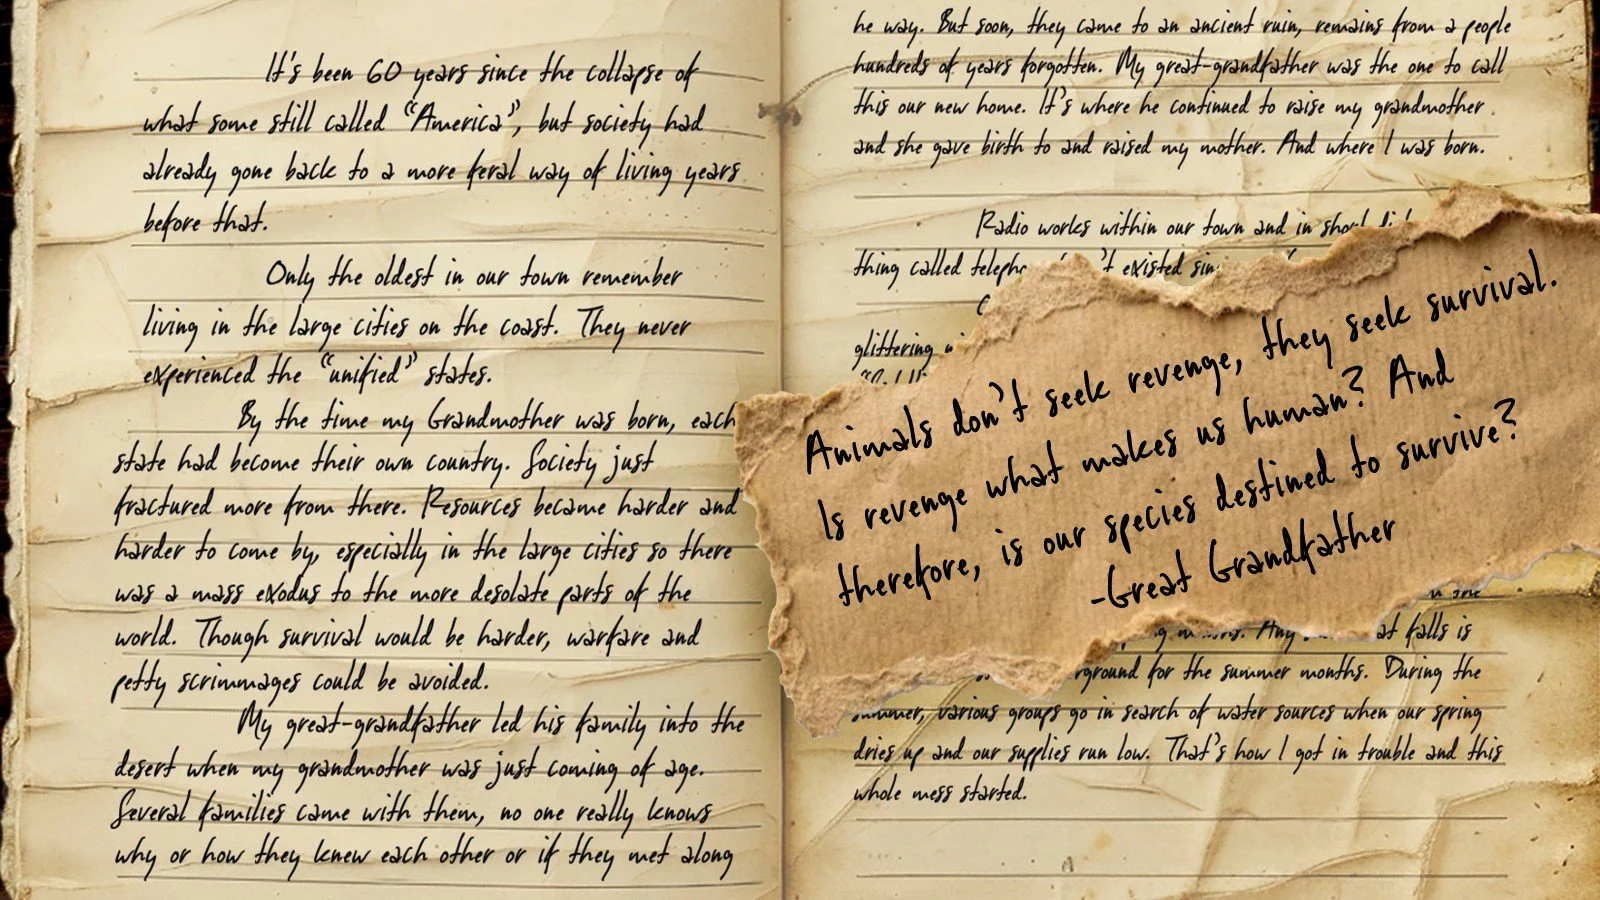 It's been 60 years since the collapse of
what some still called "America", but society had
already gone back to a more feral way of living years
before that.
Only the oldest in our town remember
living in the large cities on the coast. They never
experienced the "unified" states.
By the time my Grandmother was born, each
state had become their own country. Society just
fractured more from there. Resources became harder and
harder to come by, especially in the large cities so there
was a mass exodus to the more desolate parts of the
world. Though survival would be harder, warfare and
petty scrimmages could be avoided.
My great-grandfather led his family into the
desert when my grandmother was just coming of age.
Several families came with them, no one really knows
why or how they knew each other or if they met along
he way. But soon, they came to an ancient ruin, remains from a people
hundreds of years forgotten. My great-grandfather was the one to call
this our new home. It's where he continued to raise my grandmother
and she gave birth to and raised my mother. And where I was born.
Radio works within our town and in short
thing called existed
glittering
Animals don't seek revenge, they seek survival.
Is revenge what makes us human? And
therefore, is our species destined to survive?
-Great Grandfather
falls is
for the summer months. During the
summer, various groups go in search of water sources when our spring
dries up and our supplies run low. That's how I got in trouble and this
whole mess started.